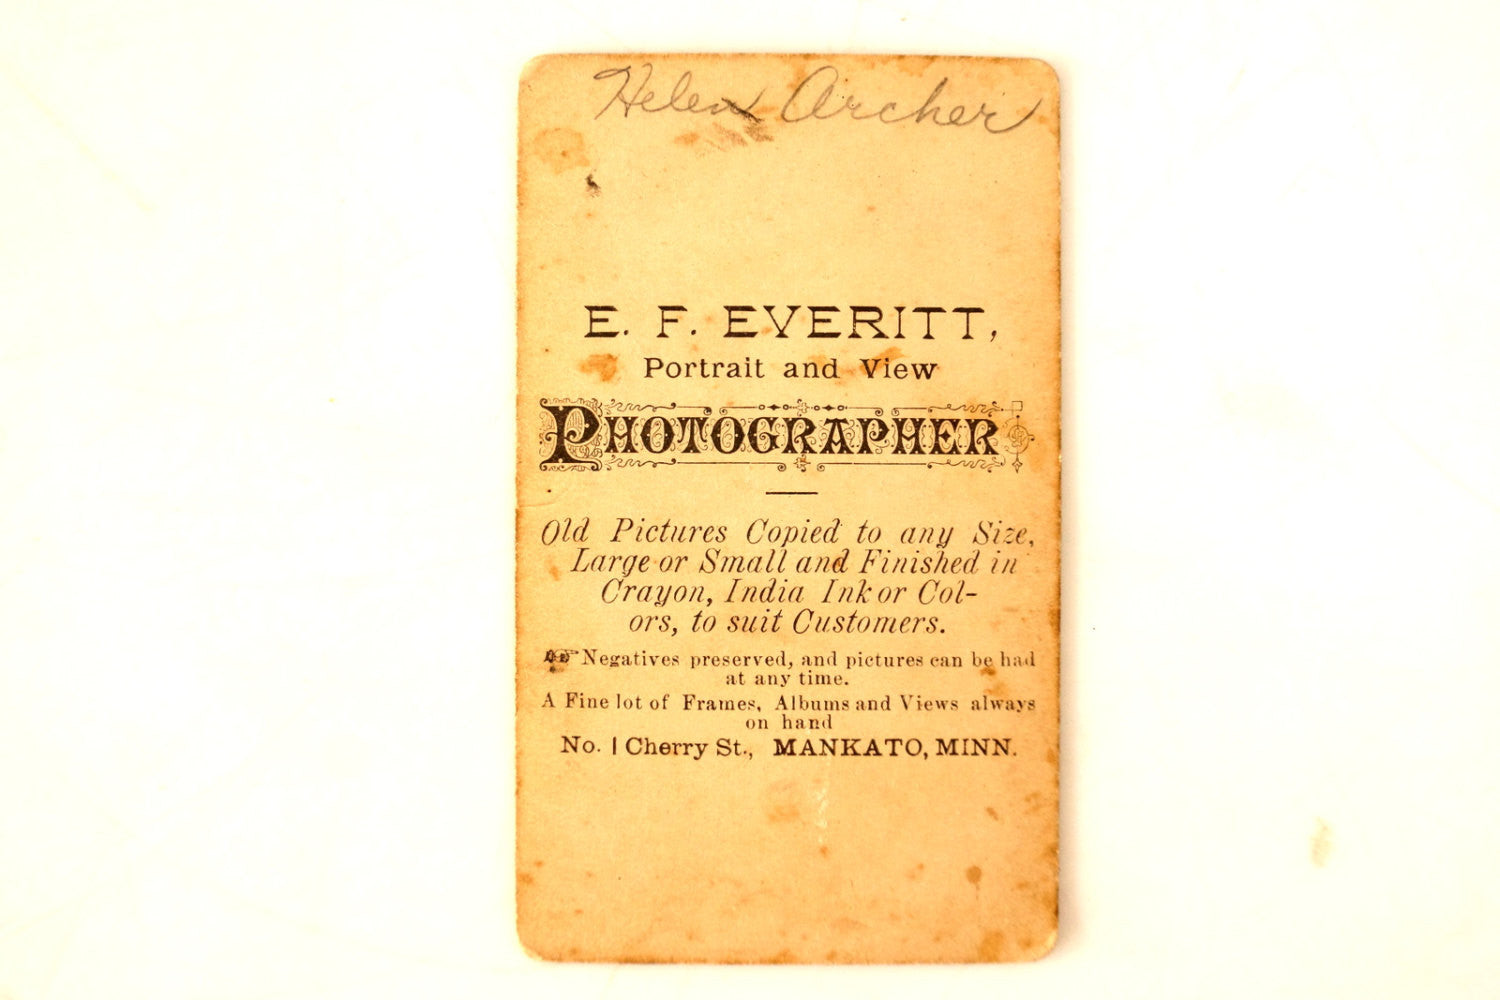 Helen Archer
E. F. EVERITT,
Portrait and View
PHOTOGRAPHER
Old Pictures Copied to any Size,
Large or Small and Finished in
Crayon, India Ink or Col-
ors, to suit Customers.
☞ Negatives preserved, and pictures can be had
at any time.
A Fine lot of Frames, Albums and Views always
on hand
No. 1 Cherry St., MANKATO, MINN.